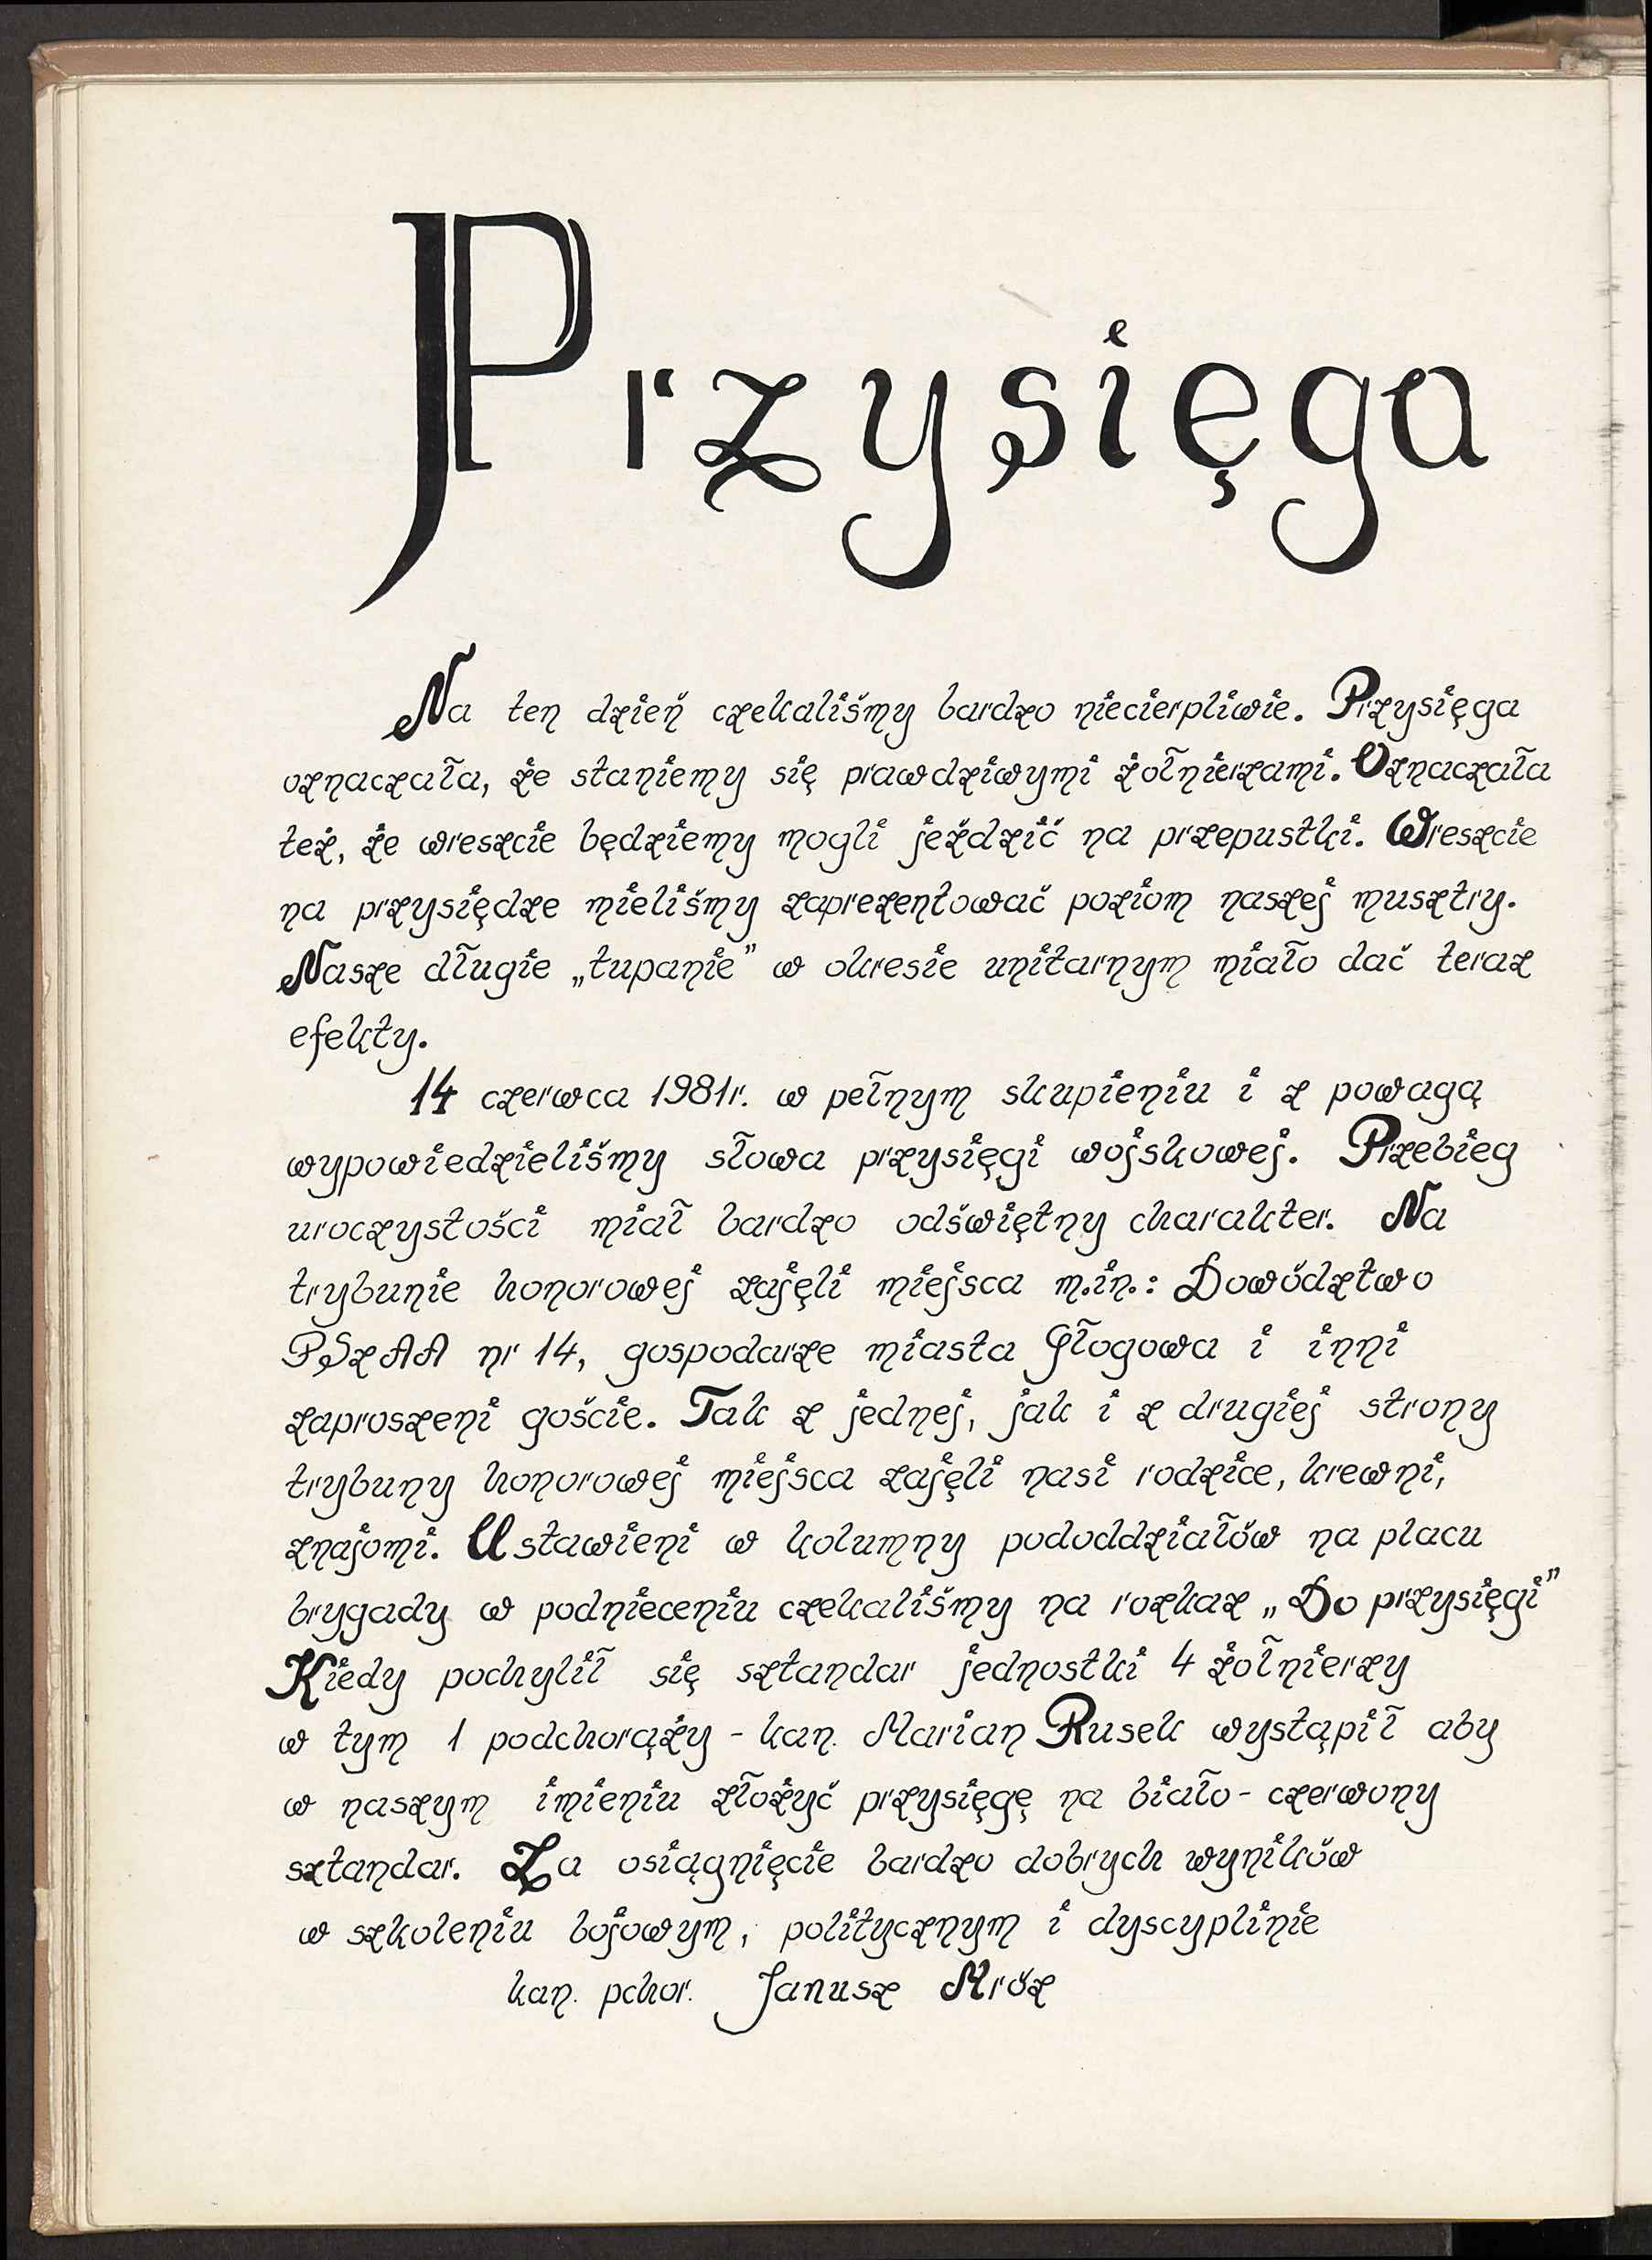 Przysięga
Na ten dzień czekaliśmy bardzo niecierpliwie. Przysięga
oznaczała, że staniemy się prawdziwymi żołnierzami. Oznaczała
też, że wreszcie będziemy mogli jeździć na przepustki. Wreszcie
na przysiędze mieliśmy zaprezentować poziom naszej musztry.
Nasze długie „tupanie” w okresie unitarnym miało dać teraz
efekty.
14 czerwca 1981r. w pełnym skupieniu i z powagą
wypowiedzieliśmy słowa przysięgi wojskowej. Przebieg
uroczystości miał bardzo odświętny charakter. Na
trybunie honorowej zajęli miejsca m.in.: Dowództwo
PSzAA nr 14, gospodarze miasta Głogowa i inni
zaproszeni goście. Tak z jednej, jak i z drugiej strony
trybuny honorowej miejsca zajęli nasi rodzice, krewni,
znajomi. Ustawieni w kolumny pododdziałów na placu
brygady w podnieceniu czekaliśmy na rozkaz „Do przysięgi”
Kiedy pochylił się sztandar jednostki 4 żołnierzy
w tym 1 podchorąży - kan. Marian Rusek wystąpił aby
w naszym imieniu złożyć przysięgę na biało-czerwony
sztandar. Za osiągnięcie bardzo dobrych wyników
w szkoleniu bojowym, politycznym i dyscyplinie
kan. pchor. Janusz Mróz